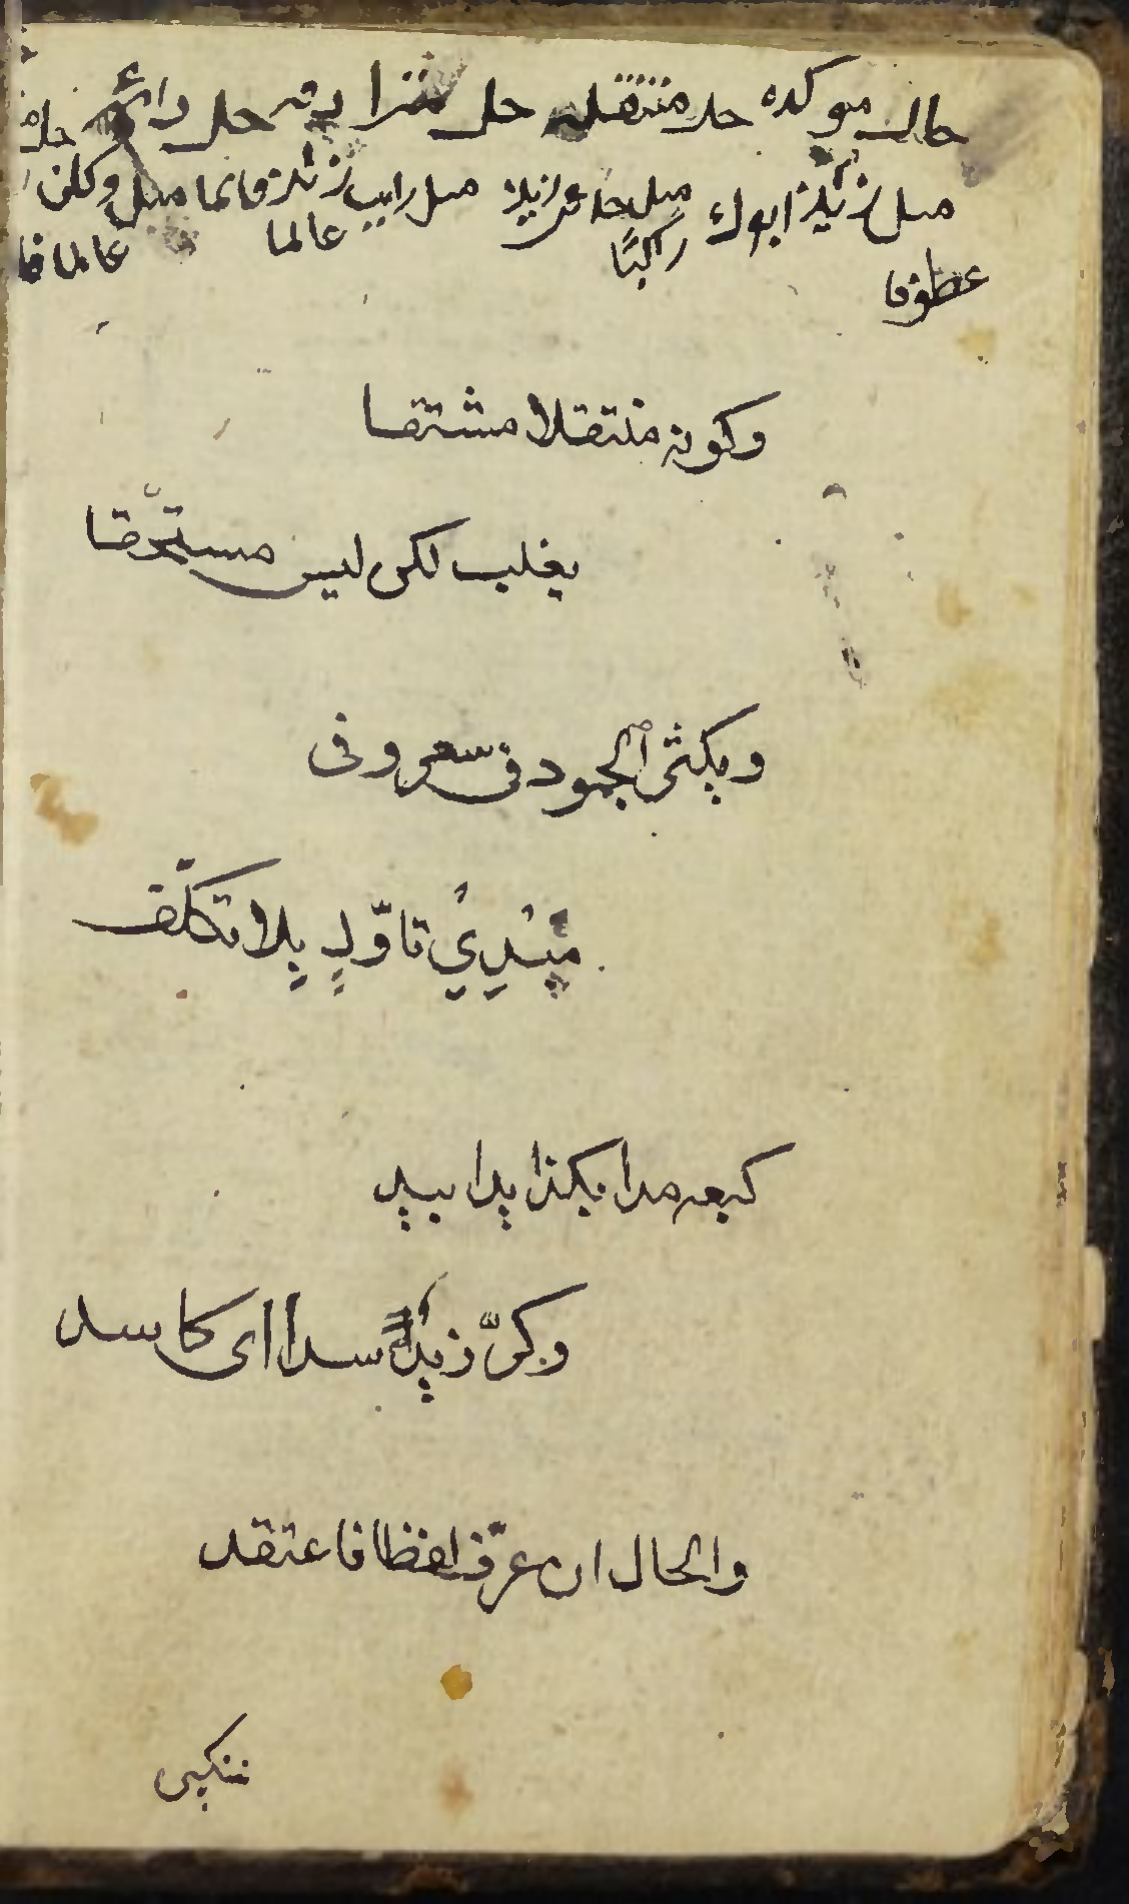 حال موكده حل منتقله حل مترادفه حل دائم حل
مثل زيد ابوك مثل جاء زيد مثل زيد قائما مثل وكان
عطوفا راكبًا عالما عالما قا
وكونه منتقلا مشتقا
يغلب لكن ليس مستحقا
ويكثر الجمود في سعر وفي
مبْدِيْ تاوّلٍ بِلا تكلّف
كبعه مدا بكذا يدا بيد
وكرّ زيدٌ اسدا اى كاسد
والحال ان عرّف لفظا فاعتقد
تنكير